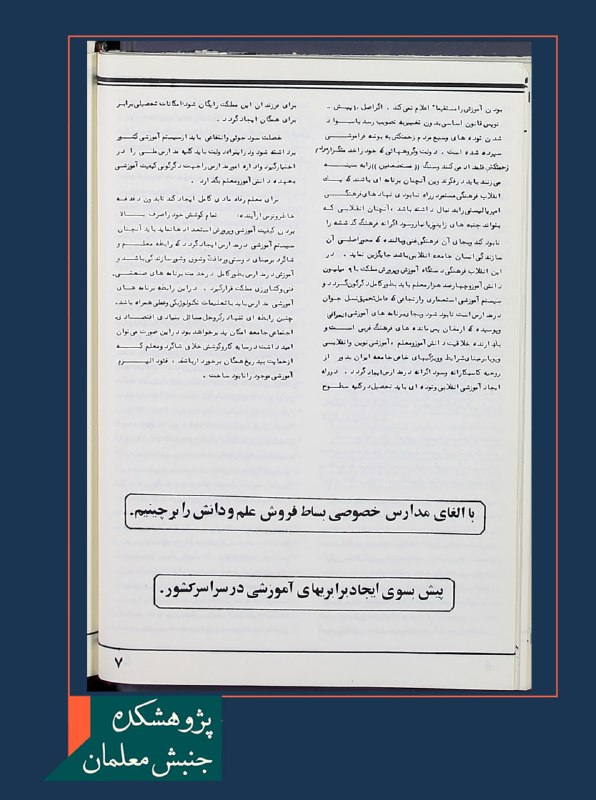 بودن آموزش را مستقیماً اعلام نمی کند . اگر اصل (پیش -
نویس قانون اساسی بدون تغییر به تصویب رسد با سواد
شدن توده های وسیع مردم زحمتکش به بوته فراموشی
سپرده شده است . دولت و گروههائی که خود را خدمتگزار مردم
زحمتکش قلمداد می کنند و سنگ ((مستضعفین )) را به سینه
می زنند باید در فکر تدوین آنچنان برنامه ای باشند که یک
انقلاب فرهنگی مستمر در راه نابودی نهادهای فرهنگی
امپریالیستی را به دنبال داشته باشد ، آنچنان انقلابی که
بتواند جنبه های زیانبار نیاز و سوداگرانه فرهنگ گذشته را
نابود کند و بجای آن فرهنگی غنی و بالنده که محور اصلی آن
سازندگی انسان جامعه انقلابی باشد جایگزین نماید . در
این انقلاب فرهنگی دستگاه آموزش و پرورش مملکت با ۹ میلیون
دانش آموز و چهارصد هزار معلم باید بطور کامل دگرگون گردد و
سیستم آموزشی استعماری و ارتجاعی که عامل تحمیق نسل جوان
در مدارس است نابود شود و بجای برنامه های آموزشی انحرافی
و پوسیده که ارمغان پس مانده های فرهنگ غربی است و
بازدارنده خلاقیت دانش آموز و معلم ، آموزشی نوین و انقلابی
و پویا بر مبنای شرایط و ویژگیهای خاص جامعه ایران بدور از
روحیه کاسبکارانه و سوداگرانه در مدارس ایجاد گردد . در راه
ایجاد آموزشی انقلابی و توده ای باید تحصیل در کلیه سطوح
برای فرزندان این مملکت رایگان شود و امکانات تحصیلی برابر
برای همگان ایجاد گردد .
خصلت سودجوئی و انتفاعی باید از سیستم آموزشی کشور
برداشته شود و بنابراین دولت باید کلیه مدارس ملی را در
اختیار گیرد و اداره امور مدارس را جهت دگرگونی کیفیت آموزشی
بعهده دانش آموز و معلم بگذارد .
برای معلم رفاه مادی کامل ایجاد کند تا بدون دغدغه
خاطر و ترس از آینده ، تمام کوشش خود را صرف بالا
بردن کیفیت آموزشی و پرورش استعدادها نماید باید آنچنان
سیستم آموزشی در مدارس ایجاد گردد که رابطه معلم و
شاگرد بر مبنای دوستی و رفاقت و شوق و شور سازندگی باشد و
آموزش در مدارس بطور کامل در خدمت برنامه های صنعتی ،
فنی و کشاورزی مملکت قرار گیرد . در این رابطه برنامه های
آموزشی مدارس باید با تعلیمات تکنولوژیکی و عملی همراه باشد ،
چنین رابطه ای تنها در گرو حل مسائل بنیادی اقتصادی ،
اجتماعی جامعه امکان پذیر خواهد بود در این صورت می توان
امید داشت در سایه کار و کوشش خلاق شاگرد و معلم که
از حمایت بیدریغ همگان برخوردار باشند ، فئودالیزم
آموزشی موجود را نابود ساخت .
با الغای مدارس خصوصی بساط فروش علم و دانش را برچینیم.
پیش بسوی ایجاد برابریهای آموزشی در سراسر کشور.
۷
پژوهشکده
جنبش معلمان